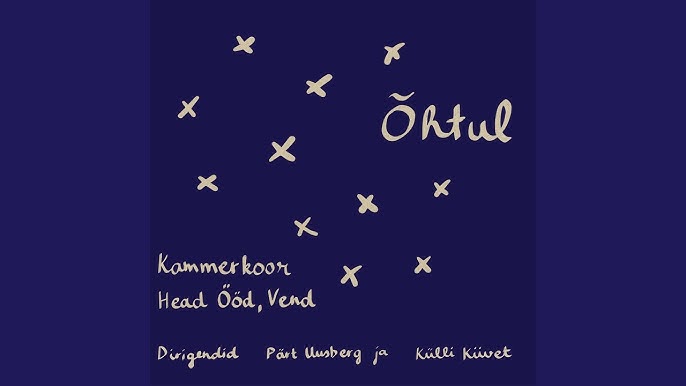 Õhtul
Kammerkoor
Head Ööd, Vend
Dirigendid Pärt Uusberg ja Külli Kiivet